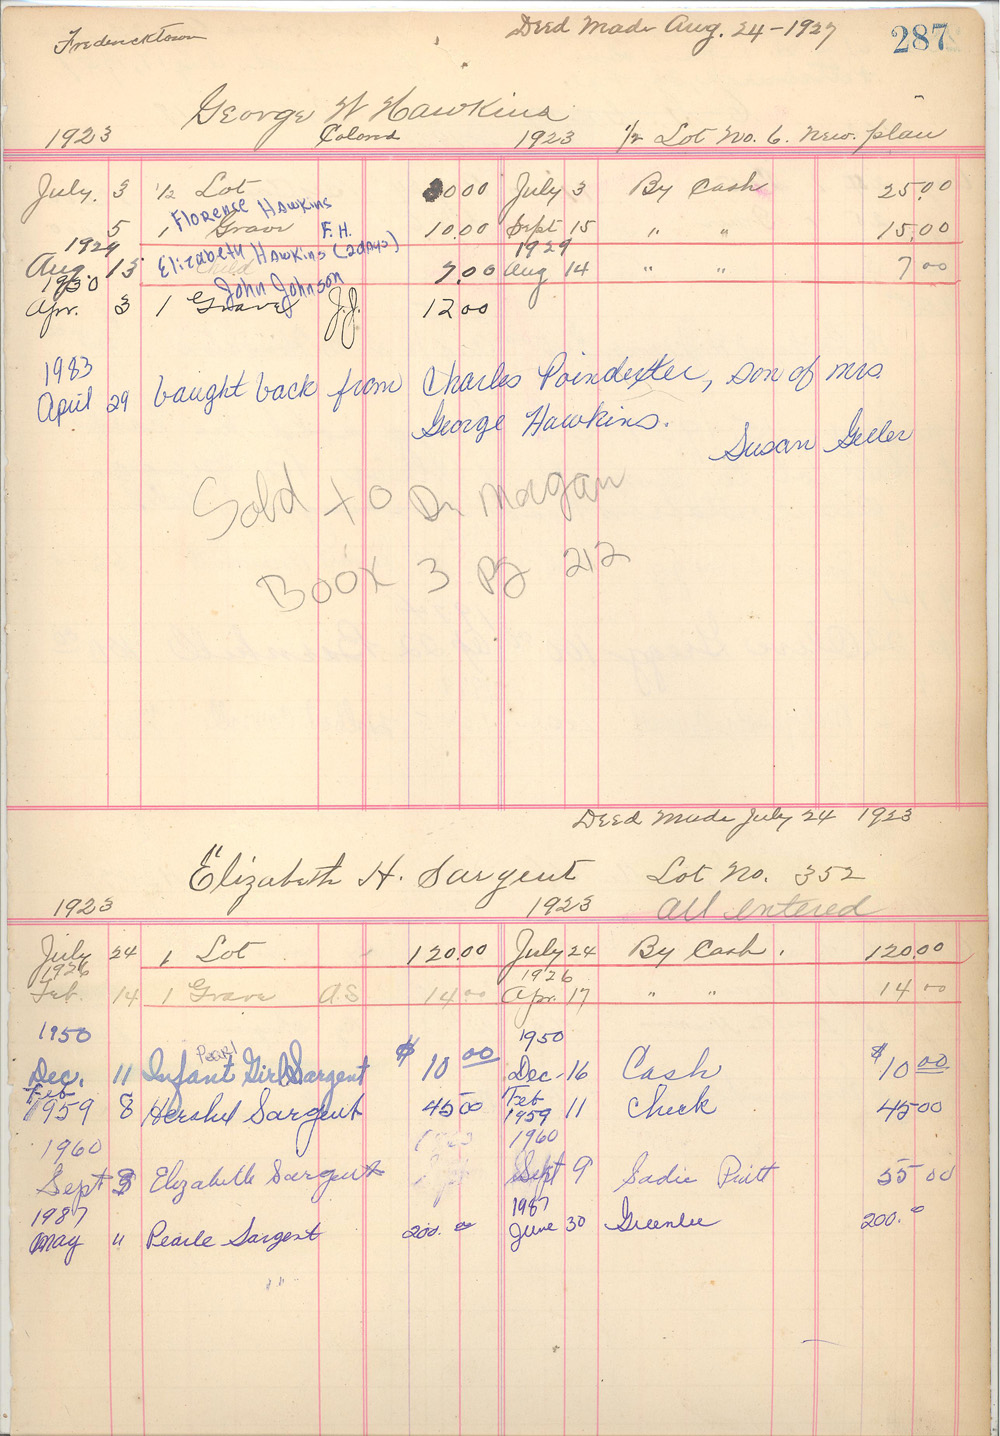 Fredericktown
Deed Made Aug. 24-1927
287
George W Hawkins
1923 Colored 1923 1/2 Lot No. 6. New. plan
July. 3 1/2 Lot 30 00 July 3 By Cash 25.00
Florense Hawkins
5 1 Grave F.H. 10.00 Sept 15 " " 15.00
1929 Elizabeth Hawkins (2 days) 1929
Aug. 13 Child 7.00 Aug 14 " " 7 00
1930 John Johnson
Apr. 3 1 Grave J.J. 12 00
1983
April 29 baught back from Charles Poindexter, son of Mrs.
George Hawkins.
Susan Geller
Sold to Dr Morgan
Book 3 Pg 212
Deed Made July 24 1923
Elizabeth H. Sargent Lot No. 352
1923 1923 all entered
July 24 1 Lot 120.00 July 24 By Cash. 120.00
1926 1926
Feb. 14 1 Grave A.S 14 00 Apr. 17 " " 14 00
1950 1950
Pearl
Dec. 11 Infant Girl Sargent $10 00 Dec-16 Cash $10 00
Feb Feb
1959 8 Hershel Sargent 45 00 1959 11 Check 45 00
1960 1960
Sept Elizabeth Sargent Sept 9 Sadie 55 00
1987 1987
May 11 Pearle Sargent 200. 00 June 30 Greenlee 200. 00